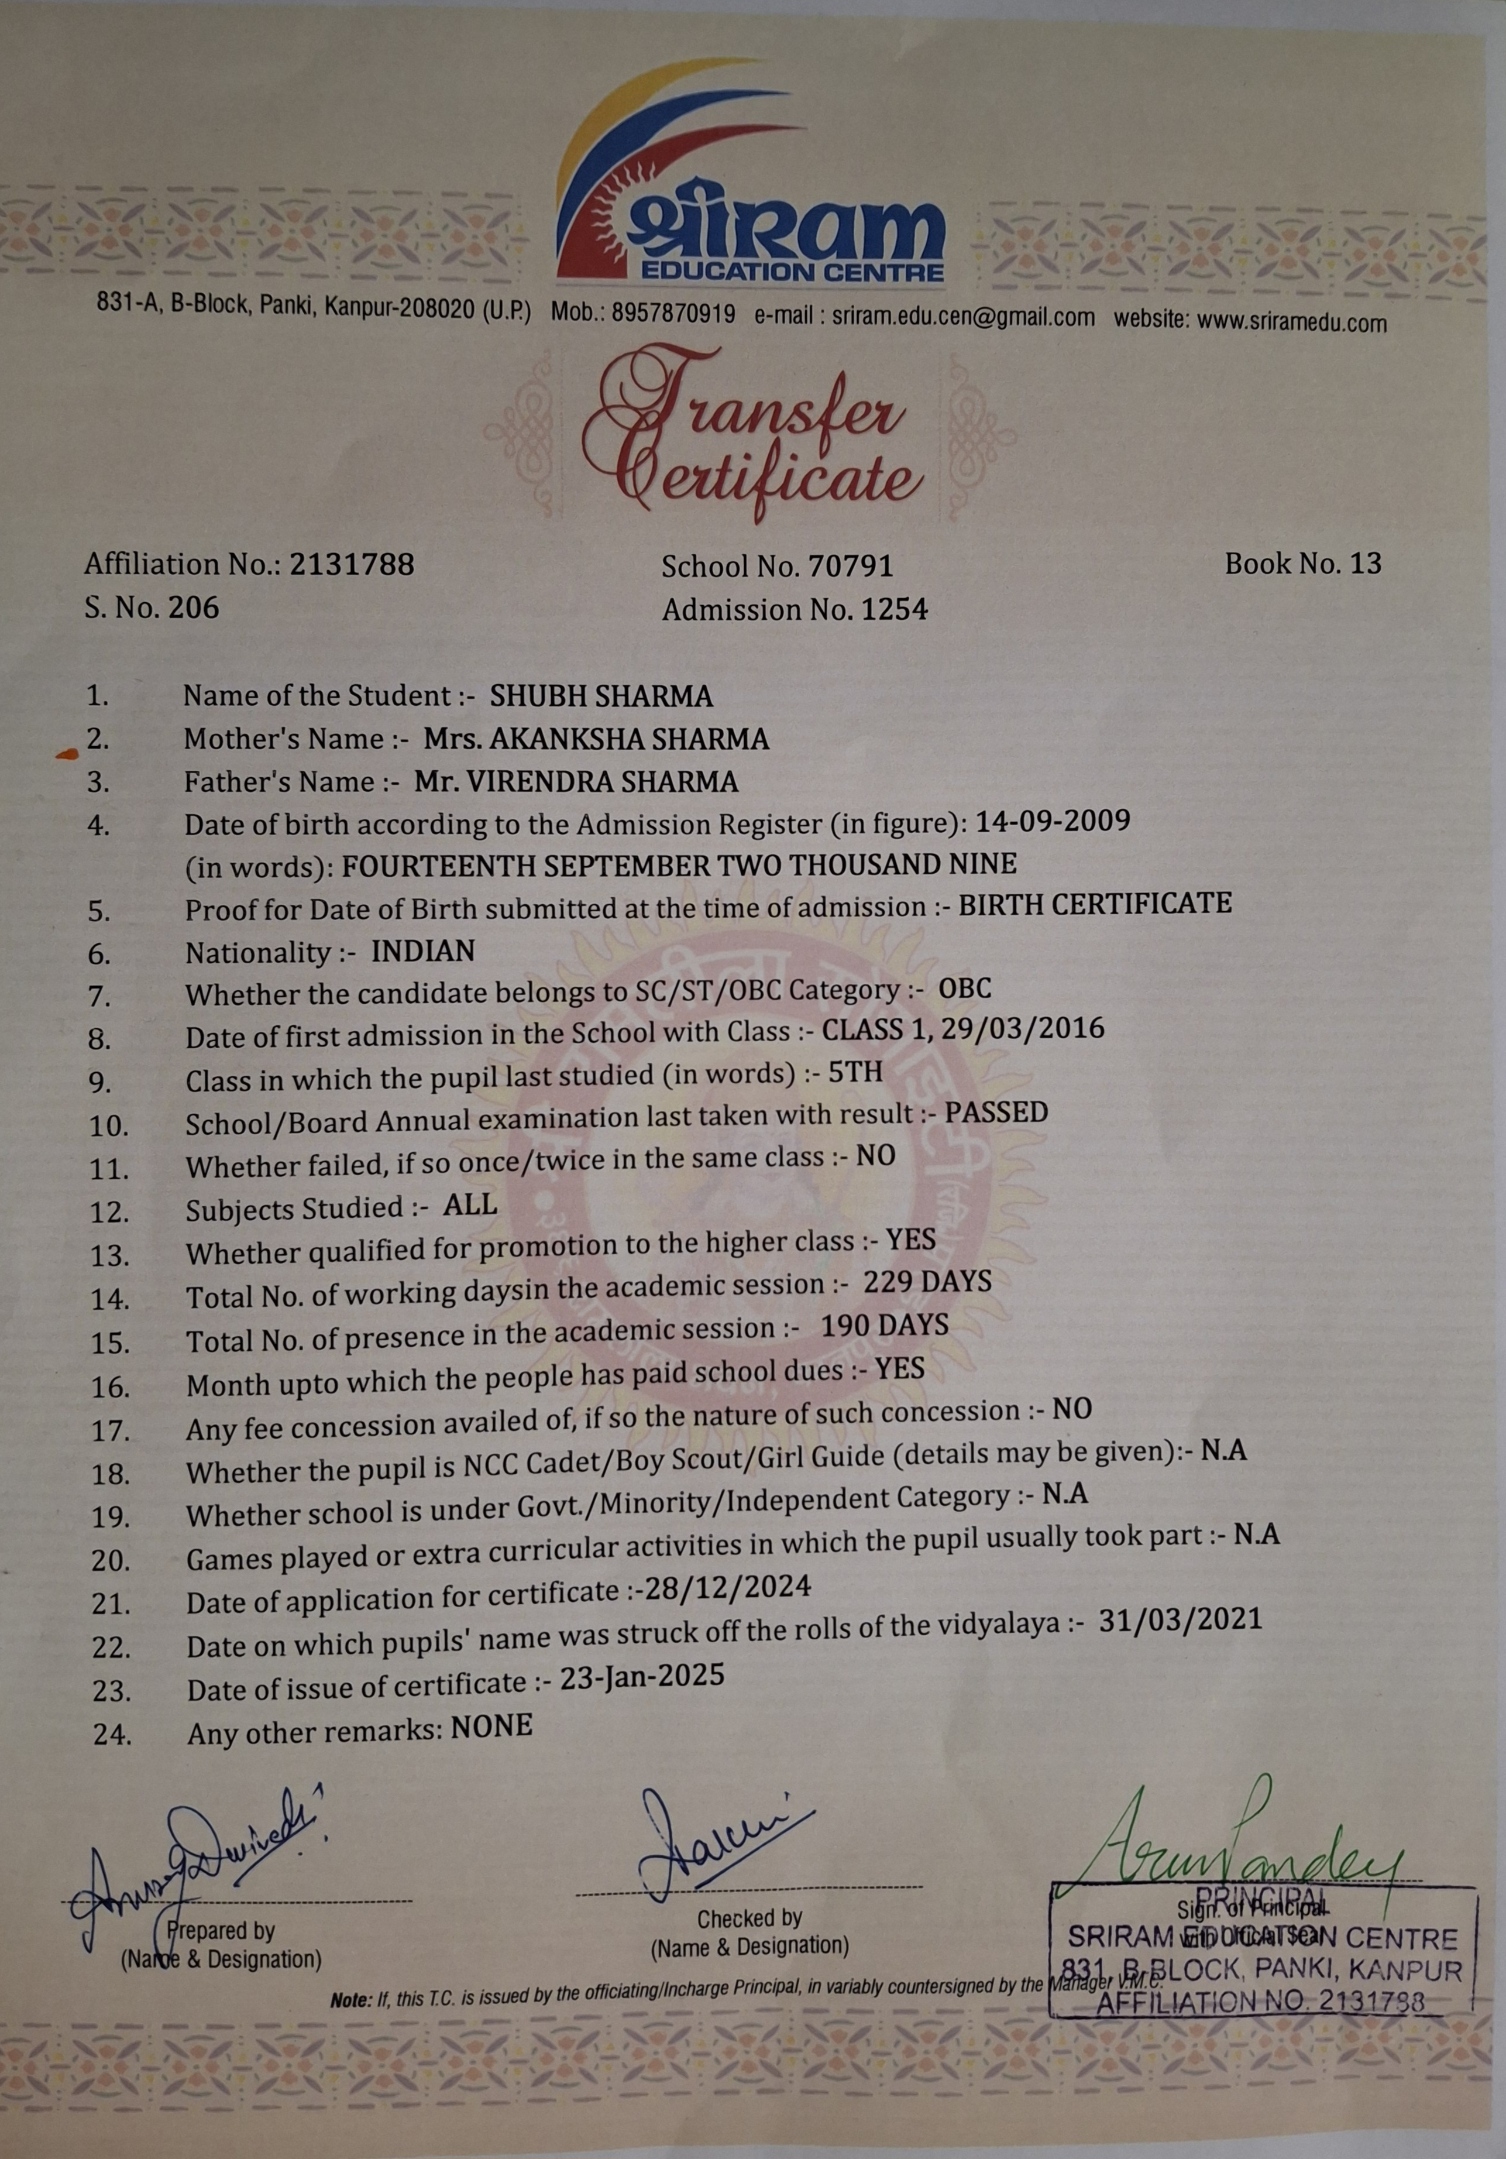 श्रीRam
EDUCATION CENTRE
831-A, B-Block, Panki, Kanpur-208020 (U.P.) Mob.: 8957870919 e-mail : sriram.edu.cen@gmail.com website: www.sriramedu.com
Transfer
Certificate
Affiliation No.: 2131788 School No. 70791 Book No. 13
S. No. 206 Admission No. 1254
1. Name of the Student :- SHUBH SHARMA
2. Mother's Name :- Mrs. AKANKSHA SHARMA
3. Father's Name :- Mr. VIRENDRA SHARMA
4. Date of birth according to the Admission Register (in figure): 14-09-2009
(in words): FOURTEENTH SEPTEMBER TWO THOUSAND NINE
5. Proof for Date of Birth submitted at the time of admission :- BIRTH CERTIFICATE
6. Nationality :- INDIAN
7. Whether the candidate belongs to SC/ST/OBC Category :- OBC
8. Date of first admission in the School with Class :- CLASS 1, 29/03/2016
9. Class in which the pupil last studied (in words) :- 5TH
10. School/Board Annual examination last taken with result :- PASSED
11. Whether failed, if so once/twice in the same class :- NO
12. Subjects Studied :- ALL
13. Whether qualified for promotion to the higher class :- YES
14. Total No. of working daysin the academic session :- 229 DAYS
15. Total No. of presence in the academic session :- 190 DAYS
16. Month upto which the people has paid school dues :- YES
17. Any fee concession availed of, if so the nature of such concession :- NO
18. Whether the pupil is NCC Cadet/Boy Scout/Girl Guide (details may be given):- N.A
19. Whether school is under Govt./Minority/Independent Category :- N.A
20. Games played or extra curricular activities in which the pupil usually took part :- N.A
21. Date of application for certificate :-28/12/2024
22. Date on which pupils' name was struck off the rolls of the vidyalaya :- 31/03/2021
23. Date of issue of certificate :- 23-Jan-2025
24. Any other remarks: NONE
Arun Pandey
Prepared by Checked by Sign. of Principal
(Name & Designation) (Name & Designation) with Official Seal
PRINCIPAL
SRIRAM EDUCATION CENTRE
831, B-BLOCK, PANKI, KANPUR
AFFILIATION NO. 2131788
Note: If, this T.C. is issued by the officiating/Incharge Principal, in variably countersigned by the Manager V.M.C.